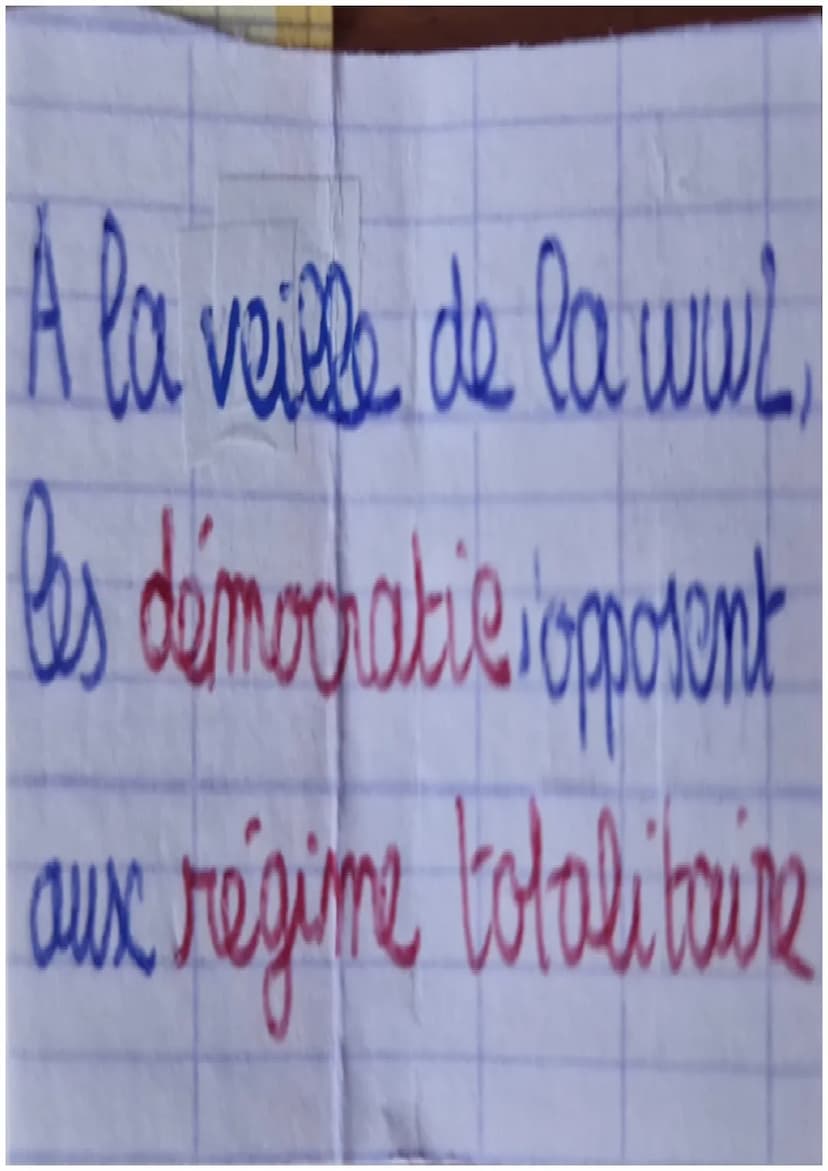 A la veille de la ww2,
les démocratie s'opposent
aux régime totalitaire